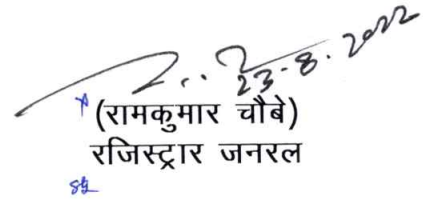 23-8-2022
(रामकुमार चौबे)
रजिस्ट्रार जनरल